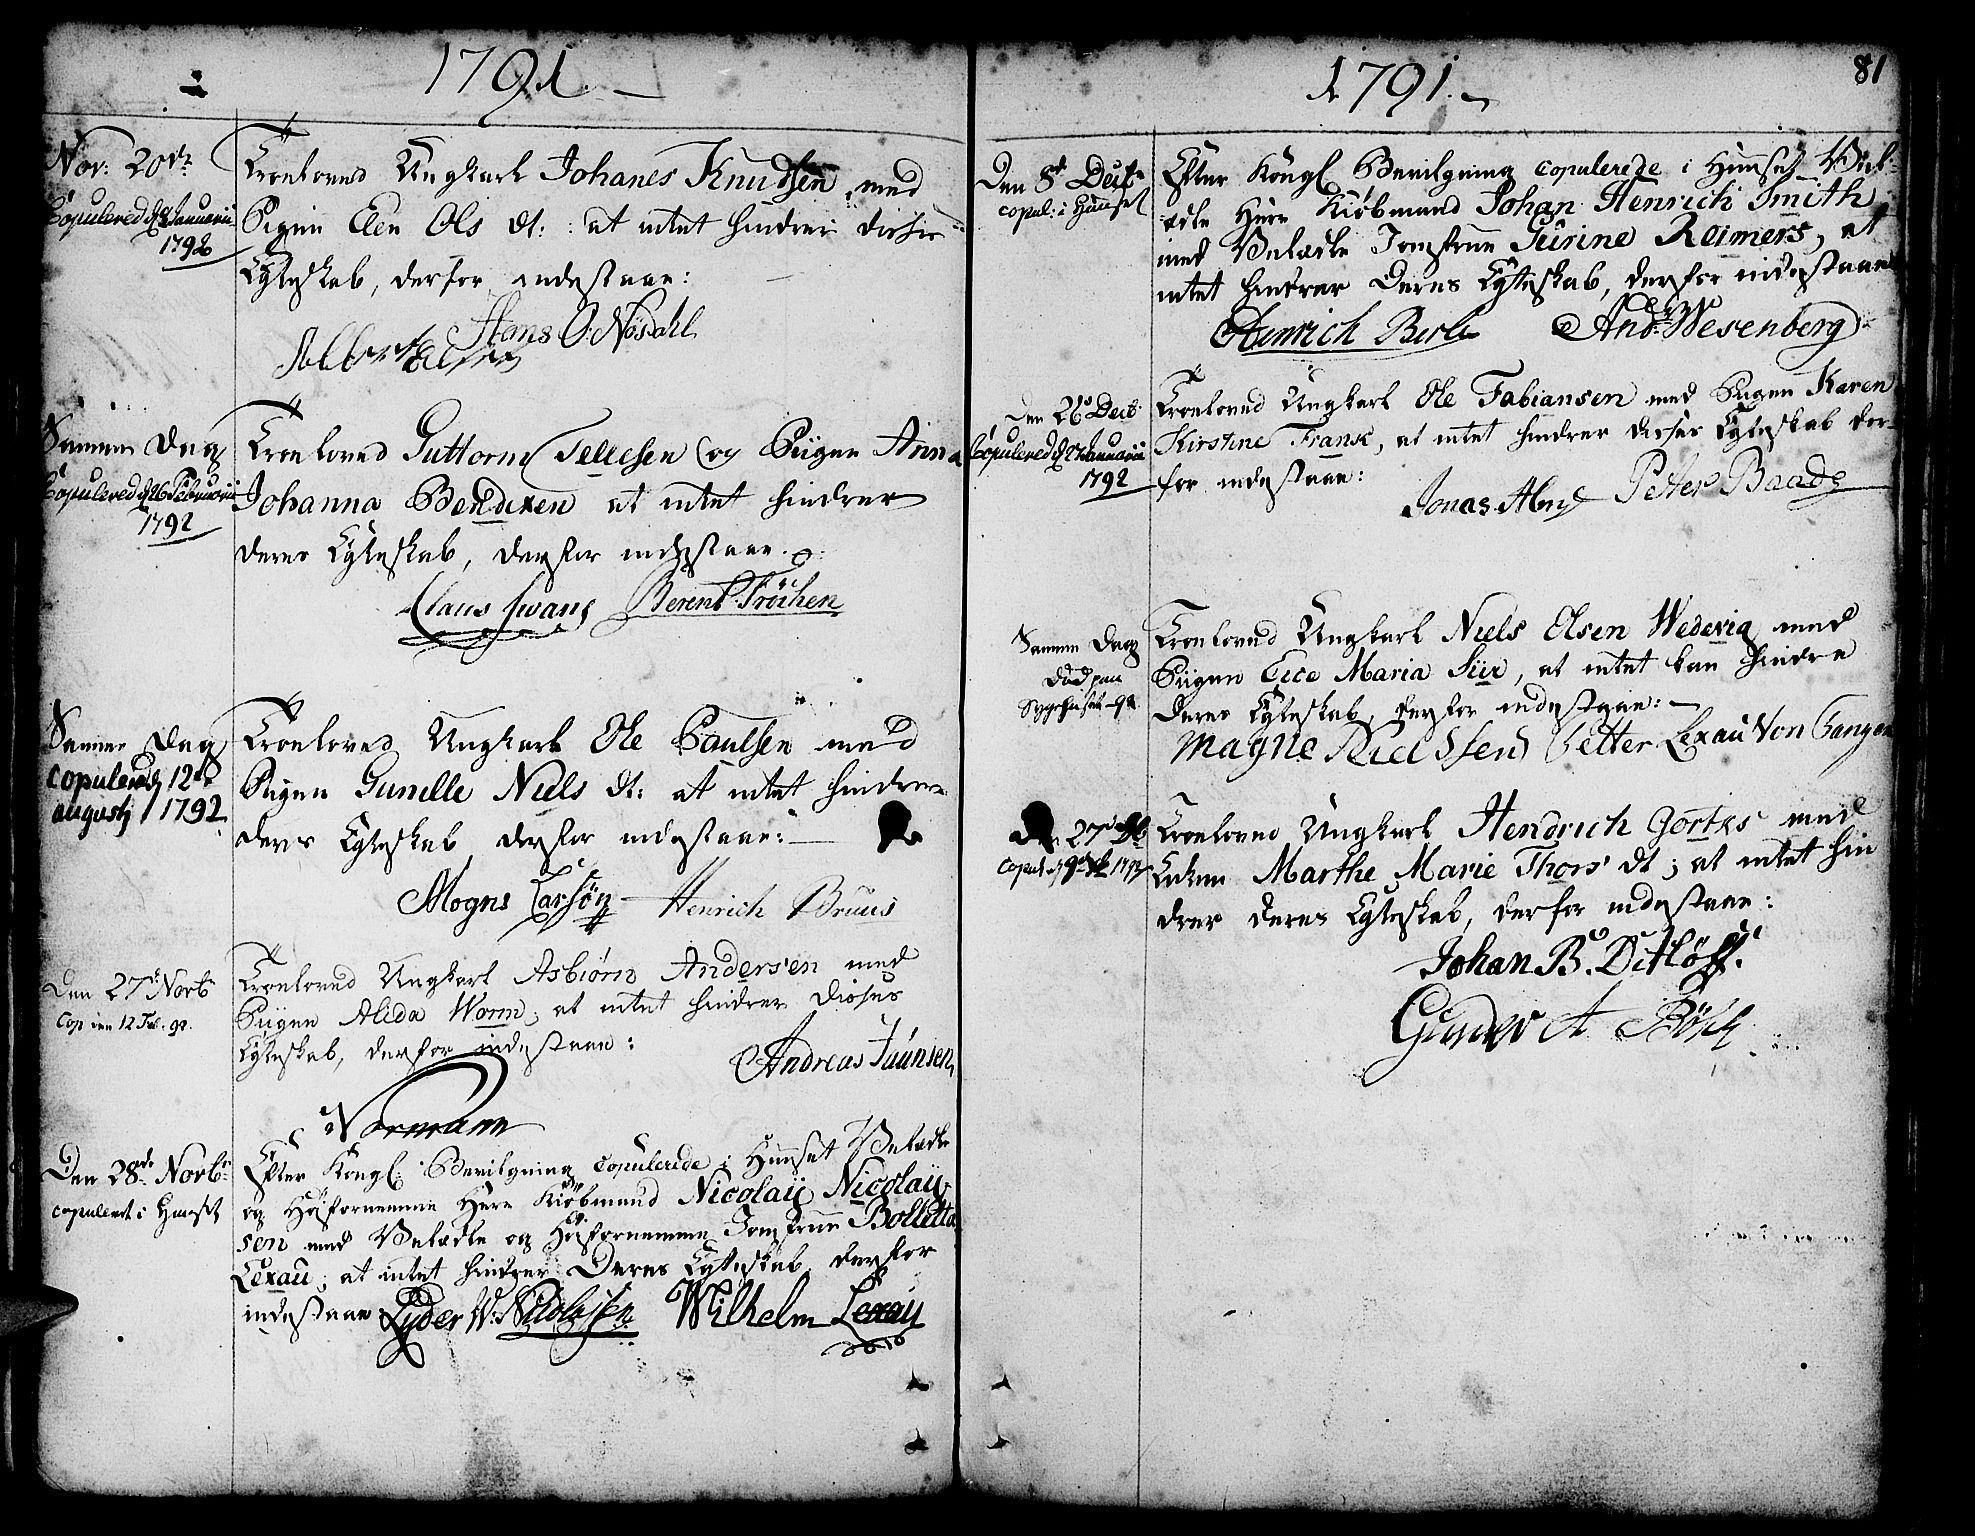 1791.
Nov: 20de
Copulered d 8 Januarii
1792
Troeloved Ungkarl Johanes Knudsen, med
Pigen Elen Ols dt: at intet hindrer disses
Ægteskab, derfor indestaae:
Hans O: Nøsdahl
Samme Dag
Copulered d 26 Februarii
1792
Troeloved Guttorm Tellesen og Pigen Anna
Johanna Bendixen at intet hindrer
deres Ægteskab, derfor indestaae.
Claus Swane Berent Fröchen
Samme Dag
copulered d 12te
augustj 1792
Troeloved Ungkarl Ole Paulsen med
Pigen Gunille Niels dt: at intet hindrer
deres Ægteskab derfor indestaae:
Mogns Larsön Henrich Bruus
Den 27de Novb
Cop den 12 Feb. 92.
Troeloved Ungkarl Asbiørn Andersen med
Pigen Alida Worm, at intet hindrer disses
Ægteskab, derfor indestaae:
Andreas Juunsen
Normann
Den 28de Novbr
copuleret i Huuset
Efter Kongl: Bevilgning Copulerede i Huuset Velædle
og Høifornemme Herr Kiøbmand Nicolaij Nicolaij-
sen med Velædle og Høifornemme Jomfrue Bolletta
Lexau; at intet hindrer Deres Ægteskab, derfor
indestaae Lyder W: Nicolaysen Wilhelm Lexau
1791.
81
Den 8de Decbr
copul: i Huuset
Efter Kongl Bevilgning copulerede i Huuset Vel-
ædle Herr Kiöbmand Johan Henrich Smith
med Velædle Jomfrue Gurine Reimers, at
intet hindrer Deres Ægteskab, derfor indestaae
Henrich Berle And: Wesenberg
Den 26de Decb.
Copulered d 27 Januarii
1792
Troeloved Ungkarl Ole Fabiansen med Pigen Karen
Kirstine Frank, at intet hindrer disses Ægteskab der-
for indestaae:
Jonas Peter Baade
Samme Dag
död paa
Sygehuset 92
Troeloved Ungkarl Niels Elsen Wedevig med
Pigen Maria Siir, at intet kan hindre
deres Ægteskab, derfor indestaae:
Magne Nielssen Petter Lexau Von Tangen
Den 27de
copul. d 1792
Troeloved Ungkarl Hendrich Gortxs med
Enken Marthe Marie Thors dt; at intet hin
drer deres Ægteskab, derfor indestaae:
Johan B. Ditlöff.
Gunder A Bösch